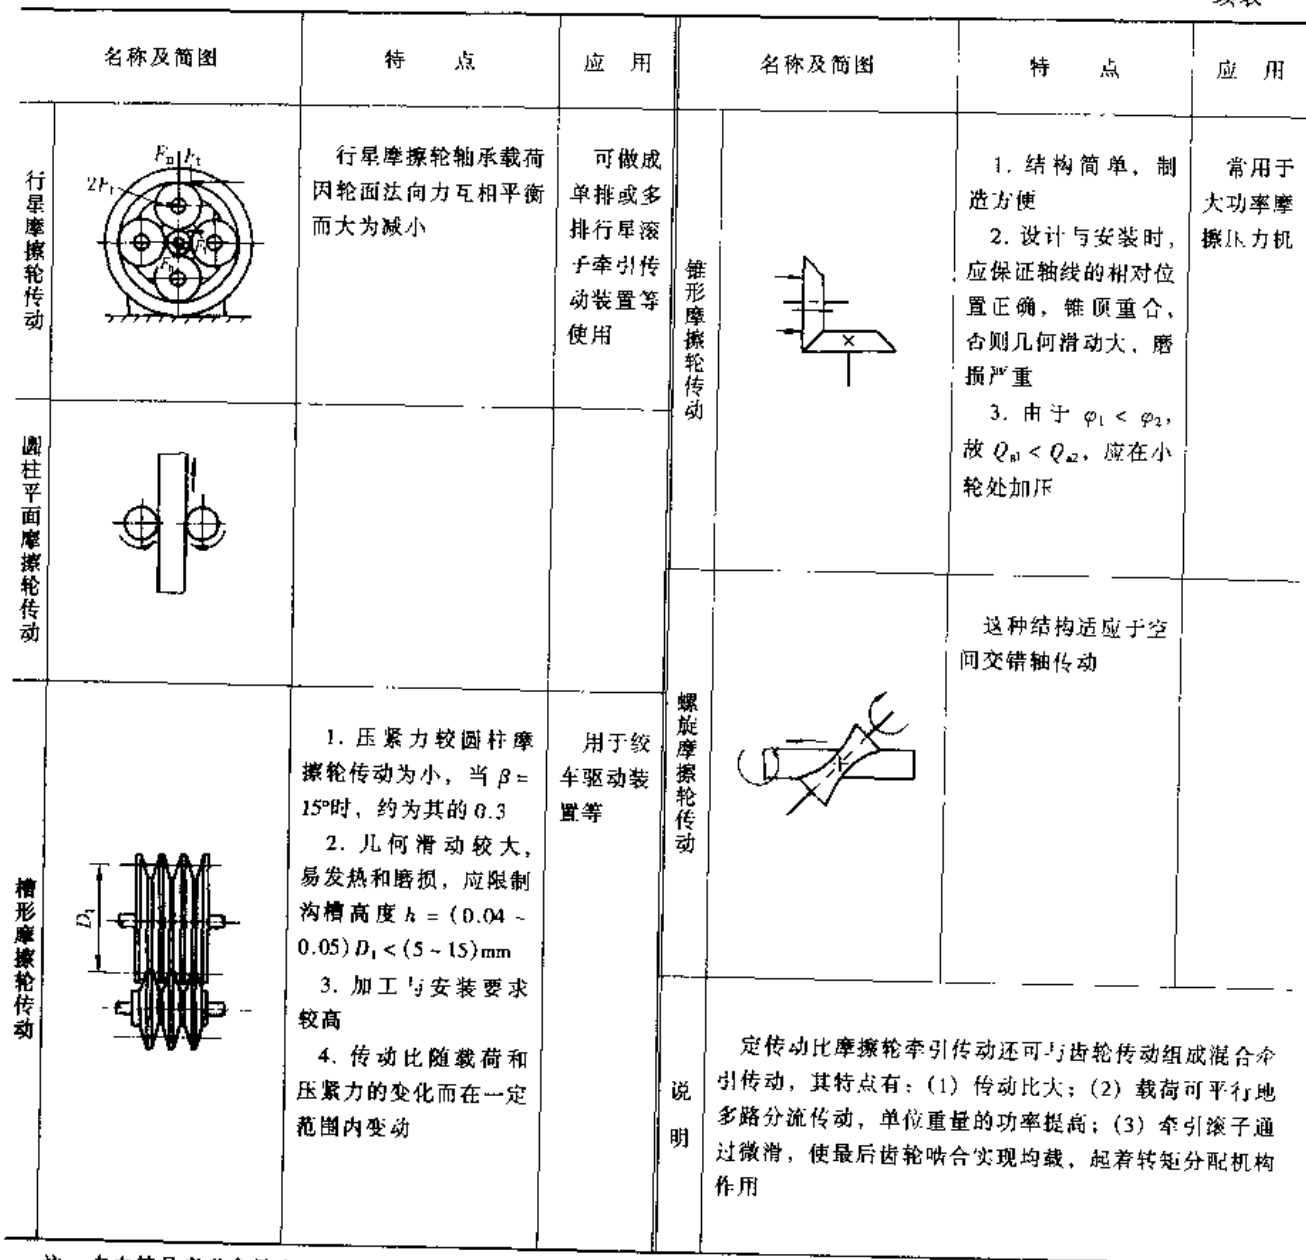 名称及简图
特 点
应 用
名称及简图
特 点
应 用
行星摩擦轮传动
行星摩擦轮轴承载荷
因轮面法向力互相平衡
而大为减小
可做成
单排或多
排行星滚
子牵引传
动装置等
使用
圆柱平面摩擦轮传动
槽形摩擦轮传动
D₁
1. 压紧力较圆柱摩
擦轮传动为小，当 β =
15°时，约为其的 0.3
2. 几何滑动较大，
易发热和磨损，应限制
沟槽高度 h = (0.04 ~
0.05) D₁ < (5 ~ 15)mm
3. 加工与安装要求
较高
4. 传动比随载荷和
压紧力的变化而在一定
范围内变动
用于绞
车驱动装
置等
锥形摩擦轮传动
1. 结构简单，制
造方便
2. 设计与安装时，
应保证轴线的相对位
置正确，锥顶重合，
否则几何滑动大，磨
损严重
3. 由于 φ₁ < φ₂，
故 Qₐ₁ < Qₐ₂，应在小
轮处加压
常用于
大功率摩
擦压力机
螺旋摩擦轮传动
这种结构适应于空
间交错轴传动
说明
定传动比摩擦轮牵引传动还可与齿轮传动组成混合牵
引传动，其特点有：(1) 传动比大；(2) 载荷可平行地
多路分流传动，单位重量的功率提高；(3) 牵引滚子通
过微滑，使最后齿轮啮合实现均载，起着转矩分配机构
作用